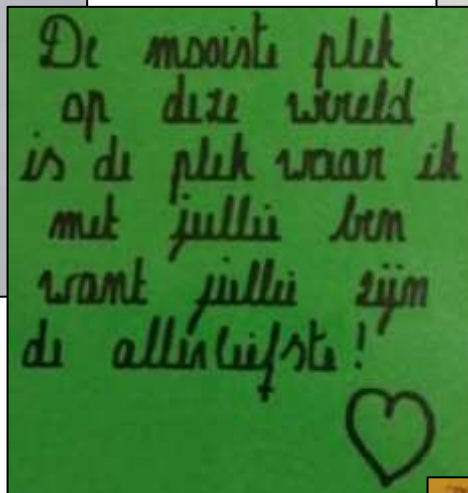 De mooiste plek
op deze wereld
is de plek waar ik
met jullie ben
want jullie zijn
de allerliefste!